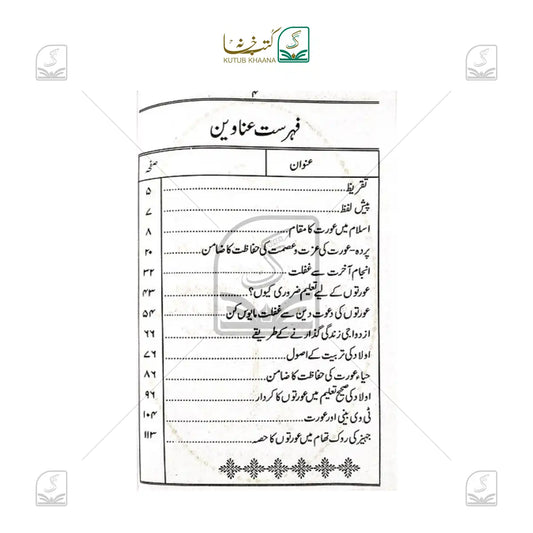 کتب خانہ
KUTUB KHAANA
۴
فہرست عناوین
عنوان صفحہ
تقریظ ۵
پیش لفظ ۷
اسلام میں عورت کا مقام ۸
پردہ-عورت کی عزت و عصمت کی حفاظت کا ضامن ۲۰
انجام آخرت سے غفلت ۳۲
عورتوں کے لیے تعلیم ضروری کیوں؟ ۴۳
عورتوں کی دعوت دین سے غفلت مایوس کن ۵۴
ازدواجی زندگی گذارنے کے طریقے ۶۶
اولاد کی تربیت کے اصول ۷۶
حیاء عورت کی حفاظت کا ضامن ۸۶
اولاد کی صحیح تعلیم میں عورتوں کا کردار ۹۶
ٹی وی بینی اور عورت ۱۰۴
جہیز کی روک تھام میں عورتوں کا حصہ ۱۱۳